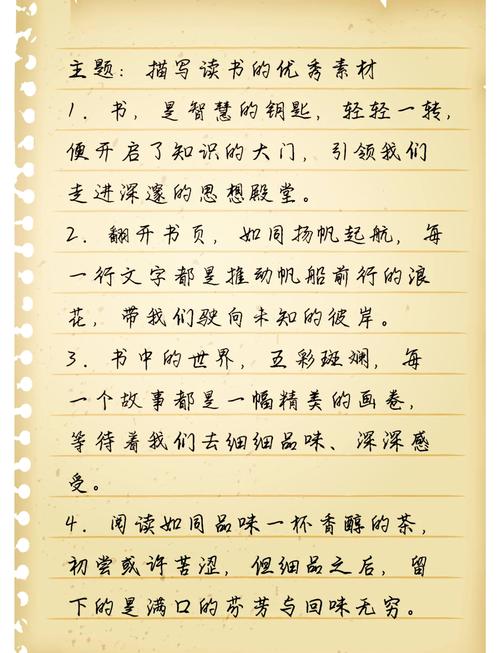 主题：描写读书的优秀素材
1．书，是智慧的钥匙，轻轻一转，
便开启了知识的大门，引领我们
走进深邃的思想殿堂。
2．翻开书页，如同扬帆起航，每
一行文字都是推动帆船前行的浪
花，带我们驶向未知的彼岸。
3．书中的世界，五彩斑斓，每
一个故事都是一幅精美的画卷，
等待着我们去细细品味、深深感
受。
4．阅读如同品味一杯香醇的茶，
初尝或许苦涩，但细品之后，留
下的是满口的芬芳与回味无穷。